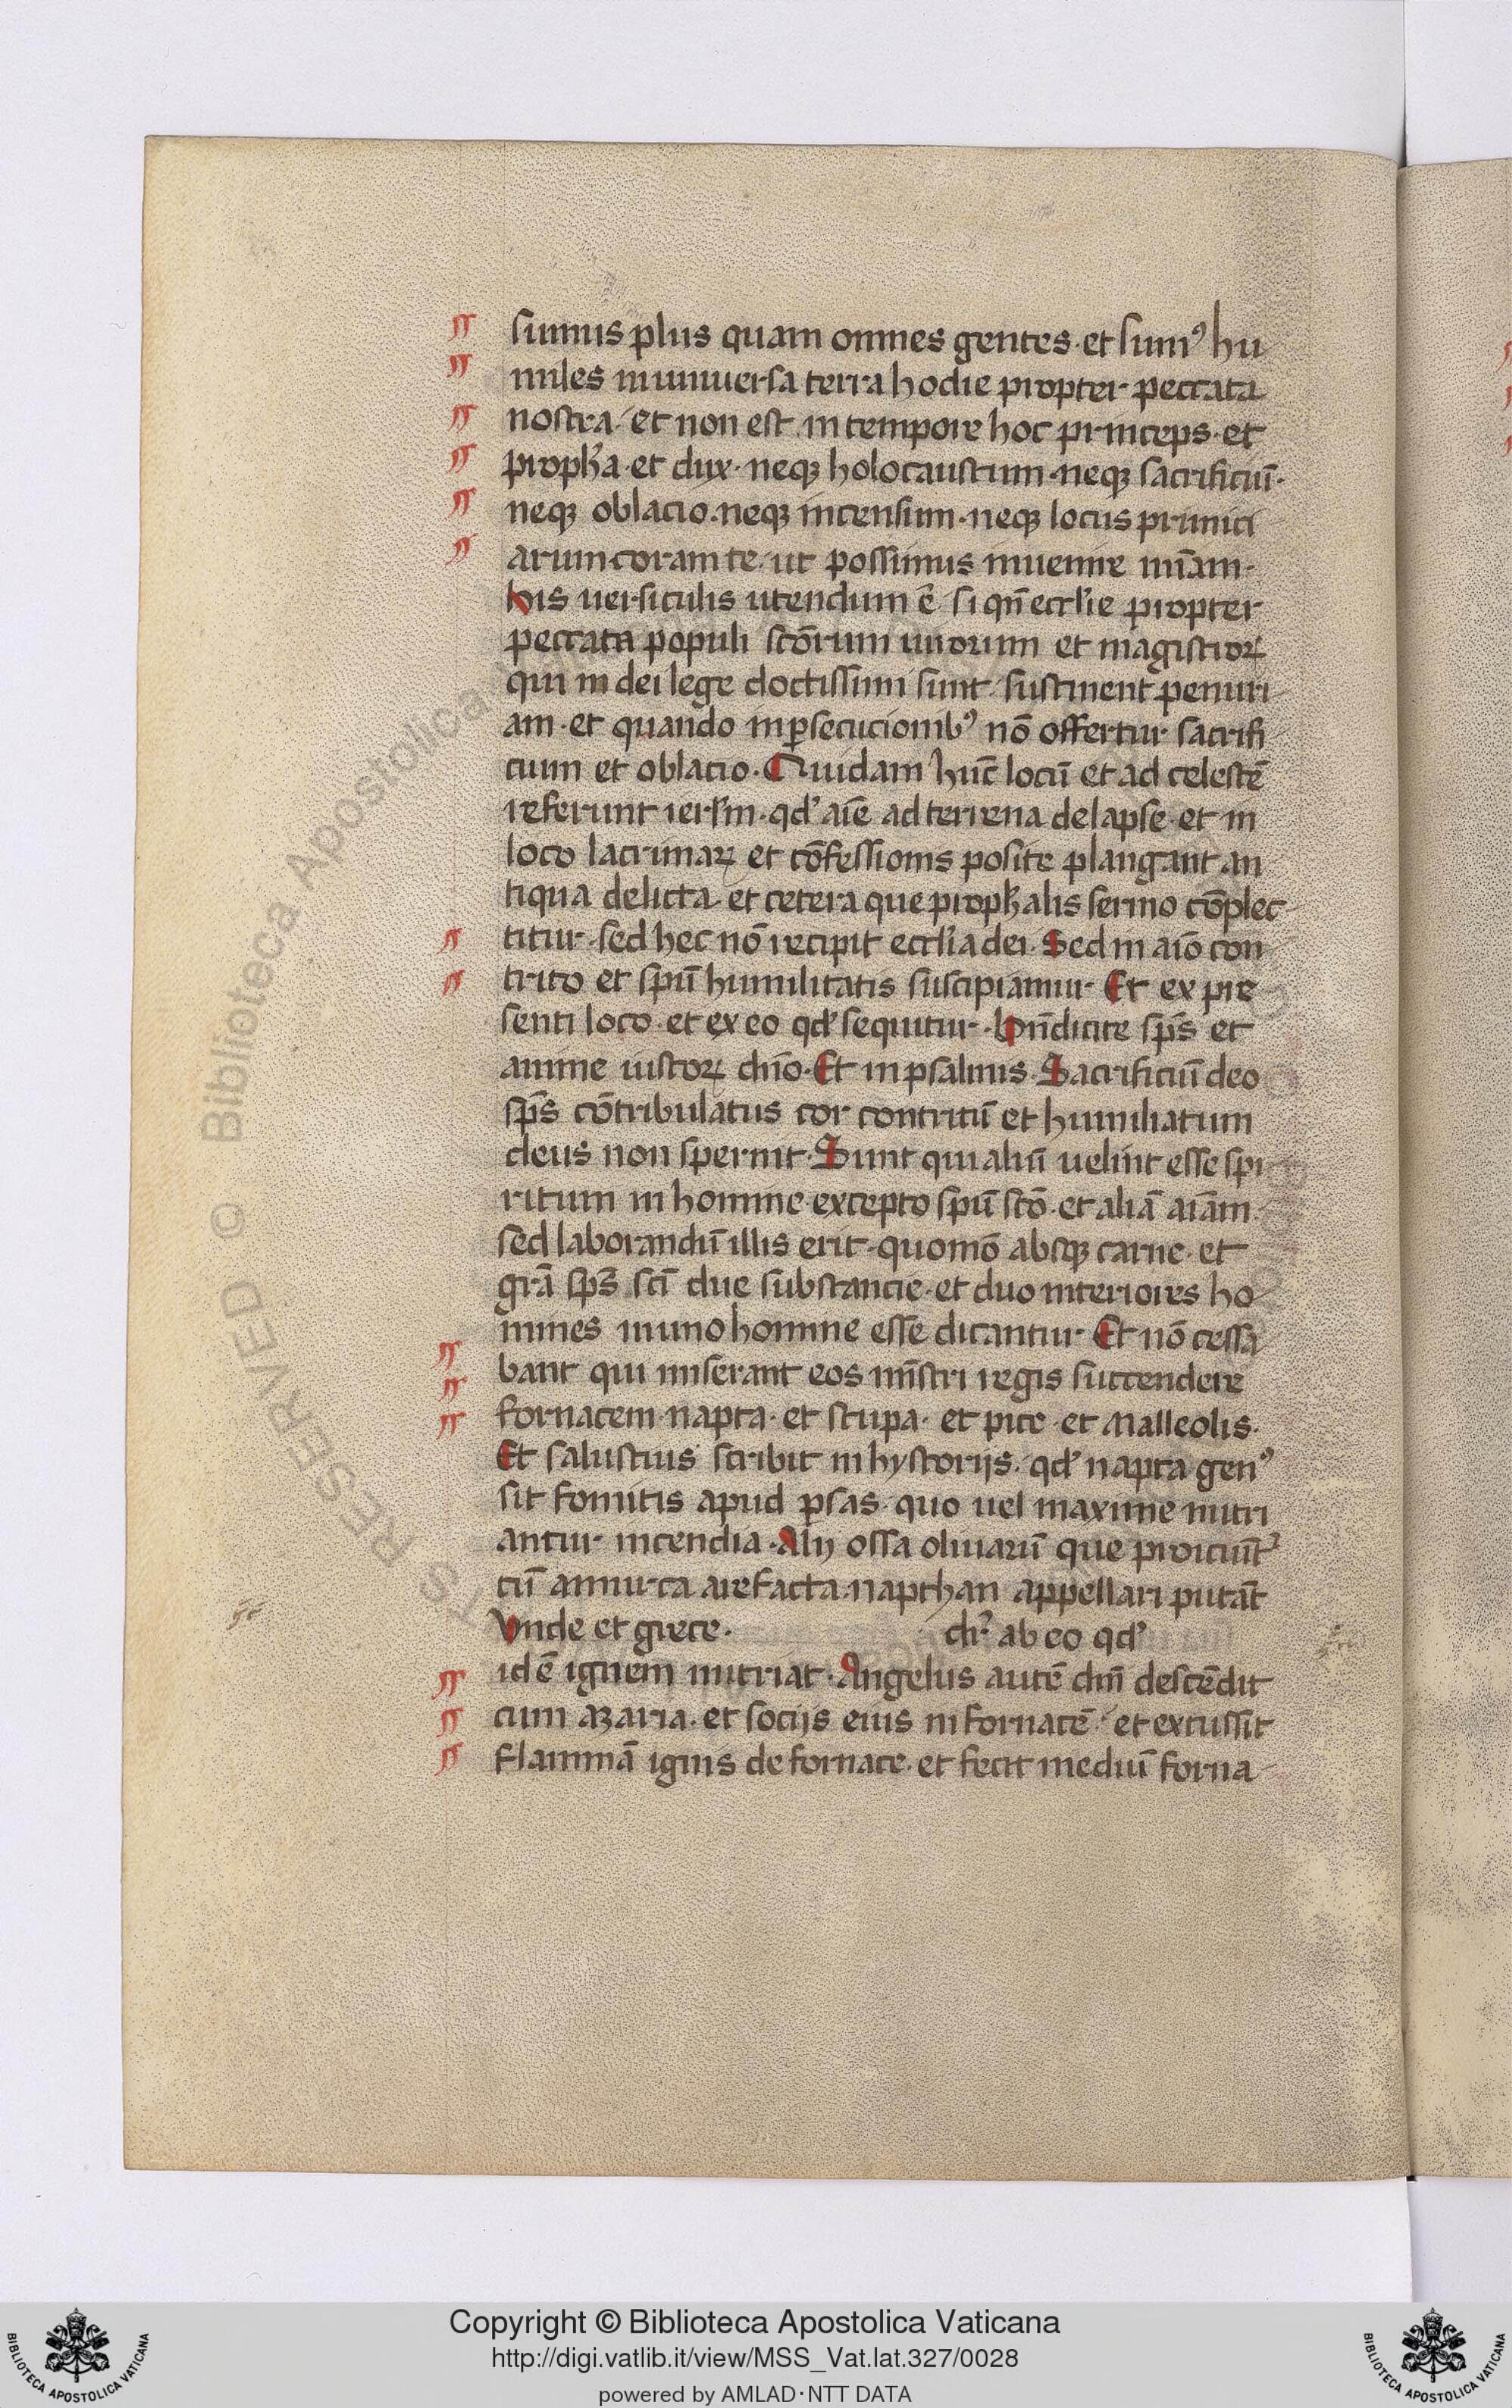 sumus plus quam omnes gentes · et sumꝰ hu
miles in uniuersa terra hodie propter peccata
nostra · et non est in tempore hoc princeps · et
prophˀa · et dux · neqꝫ holocaustum · neqꝫ sacrificiū ·
neqꝫ oblacio · neqꝫ incensum · neqꝫ locus primici
arum coram te · ut possimus inuenire mīam ·
his uersiculis utendum ē si qn̄ eccłie propter
peccata populi scōrum uirorum et magistroꝝ
qui in dei lege doctissimi sunt · sustinent penuri
am · et quando in ꝑsecucionibꝰ nō offertur sacrifi
cium et oblacio · Quidam hūc locū et ad celestē
referunt ierłm · qdˀ aīe ad terrena delapse · et in
loco lacrimaꝝ et cōfessionis posite plangant an
tiqua delicta · et cetera que prophˀalis sermo cōplec
titur · sed hec nō recipit eccłia dei · Sed in aīo con
trito et spū humilitatis suscipiamur · Et ex pre
senti loco · et ex eo qdˀ sequitur · Bn̄dicite sp̄s et
anime iustoꝝ dn̄o · Et in psalmis · Sacrificiū deo
sp̄s cōtribulatus cor contritū et humiliatum
deus non spernit · Sunt qui aliū uelint esse spi
ritum in homine · excepto spū scō · et aliā aīam ·
sed laborandū illis erit · quomō absqꝫ carne · et
grā sp̄s scī due substancie · et duo interiores ho
mines in uno homine esse dicantur · Et nō cessa
bant qui miserant eos mīstri regis succendere
fornacem · napta · et stupa · et pice · et malleolis ·
Et salustius scribit in hystorijs · qdˀ napta genꝰ
sit fomitis apud ꝑsas · quo uel maxime nutri
antur incendia · Alij ossa oliuarū que proiciūtˀ
cū amurca arefacta · napthan appellari putāt
Vnde et grece · drˀ ab eo qdˀ
id ē ignem nutriat · Angelus autē dn̄i descēdit
cum azaria · et socijs eius in fornacē · et excussit
flammā ignis de fornace · et fecit mediū forna
Copyright © Biblioteca Apostolica Vaticana
http://digi.vatlib.it/view/MSS_Vat.lat.327/0028
powered by AMLAD·NTT DATA